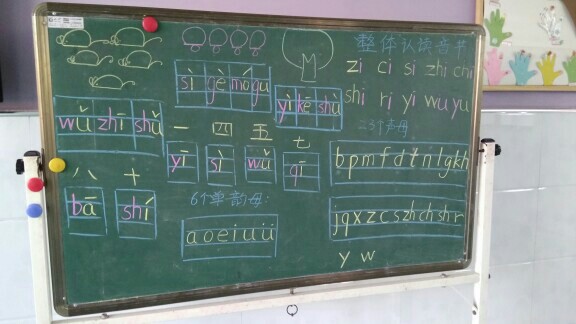 整体认读音节
zi ci si zhi chi
shi ri yi wu yu
sì gè mó gu
yì kē shù
wǔ zhī shǔ
一 四 五 七
yī sì wǔ qī
八 十
bā shí
23个声母
b p m f d t n l g k h
j q x z c s zh ch sh r
y w
6个单韵母:
a o e i u ü